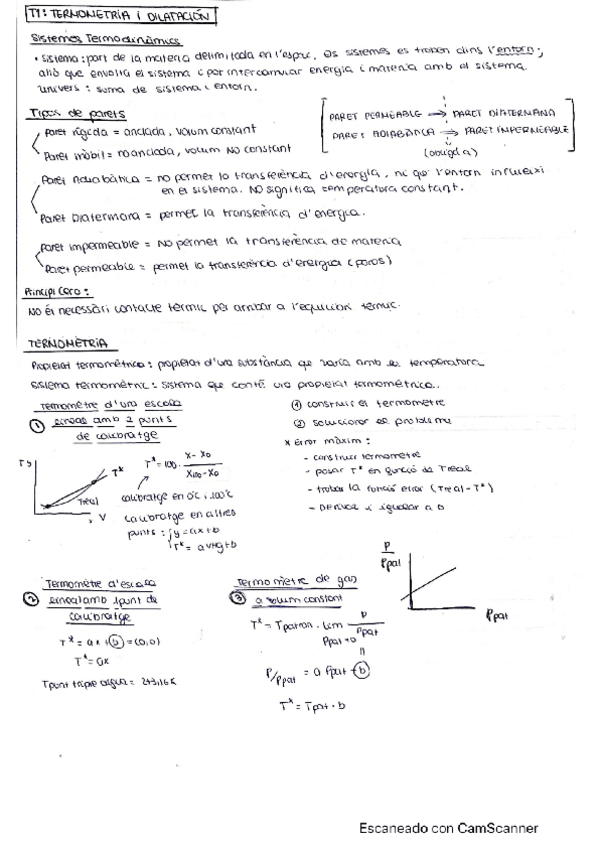 T1: TERMOMETRIA i DILATACIÓN
Sistemes Termodinàmics
• Sistema: part de la materia delimitada en l'espai. Els sistemes es troben dins l'entorn;
allò que envolta el sistema i pot intercanviar energia i materia amb el sistema.
Univers: suma de sistema i entorn.
Tipos de parets
Paret rígida = anclada, volum constant
Paret mòbil = no anclada, volum NO constant
PARET PERMEABLE → PARET DIATERMANA
PARET ADIABÀTICA ⇒ PARET IMPERMEABLE
(obligda)
Paret Adiabàtica = no permet la transferència d'energia, ni que l'entorn influeixi
en el sistema. NO significa temperatura constant.
Paret Diatermana = permet la transferència d'energia.
Paret impermeable = NO permet la transferència de materia
Paret permeable = permet la transferència d'energia (poros)
Principi Cero:
No és necessàri contacte tèrmic per arribar a l'equilibri tèrmic.
TERMOMETRIA
Propietat termomètrica: propietat d'una substància que varia amb la temperatura
Sistema termomètric: sistema que conté una propietat termomètrica.
Termomètre d'una escala
① lineal amb 2 punts
de calibratge
T y
T*
Treal
V
T* = 100 · (x - x0) / (x100 - x0)
calibratge en 0ºC i 100ºC
calibratge en altres
punts: y = ax + b
T* = a + b
① construir el termometre
② solucionar el problema
* Error màxim:
- construir termometre
- posar T* en funció de Treal
- trobar la funció error (Treal - T*)
- DERIVAR i igualar a 0
Termomètre d'escala
② lineal amb 1 punt de
calibratge
T* = ax + b = (0,0)
T* = ax
T punt triple aigua = 273,16 K
Termomètre de gas
③ a volum constant
T* = Tpatron · lim P / Ppat
Ppat → 0
P/Ppat = a Ppat + b
T* = Tpat · b
P
Ppat
Ppat
Escaneado con CamScanner